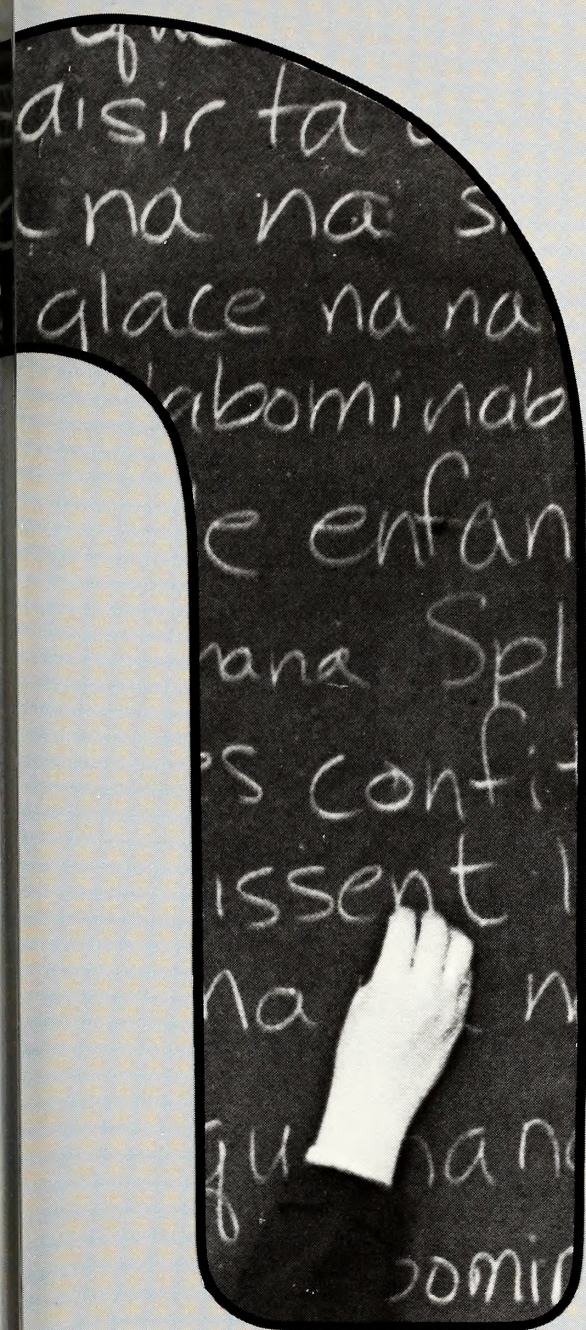 aisir ta
na na s
glace na na
abominab
e enfan
ana Spl
s confit
issent l
na n
qu nana
omin